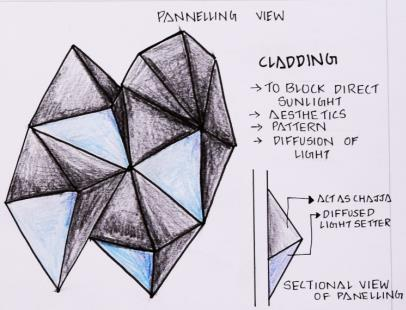 PANNELLING VIEW
CLADDING
→ TO BLOCK DIRECT
SUNLIGHT
→ AESTHETICS
→ PATTERN
→ DIFFUSION OF
LIGHT
ACT AS CHAJJA
DIFFUSED
LIGHT SETTER
SECTIONAL VIEW
OF PANELLING